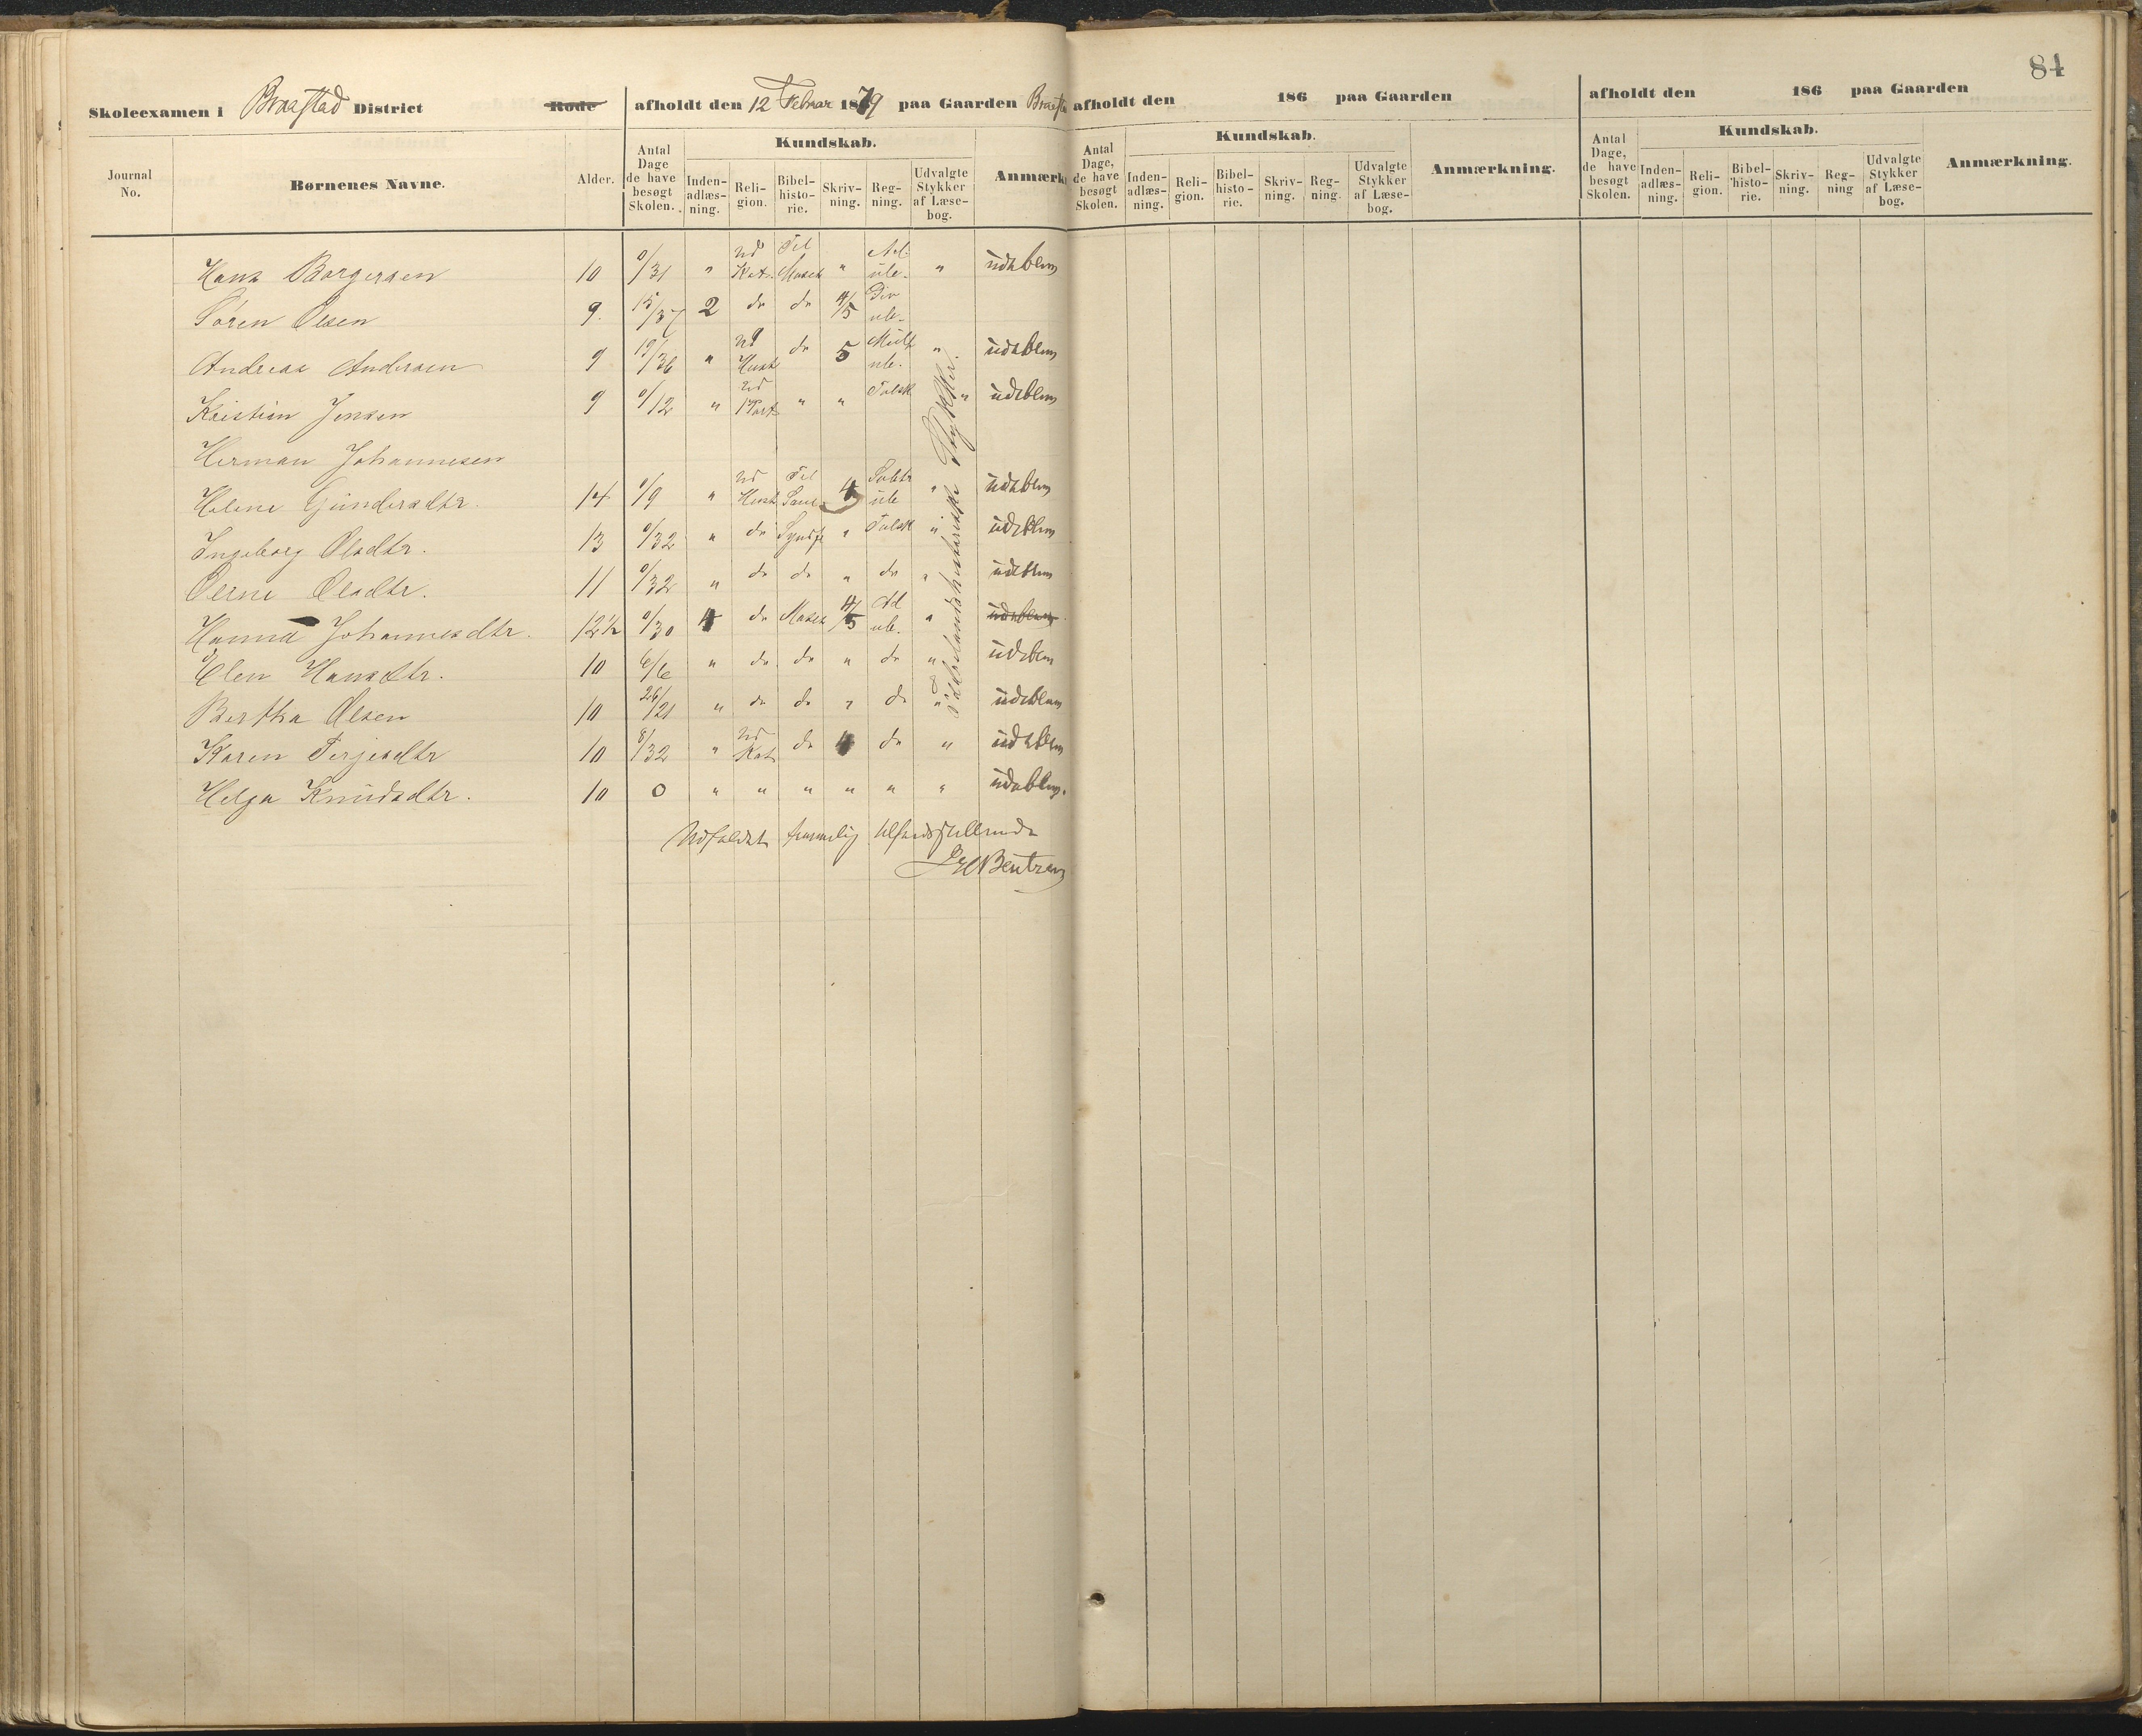 84
Skoleexamen i Braastad District Rode afholdt den 12 Februar 1879 paa Gaarden Braasta
afholdt den 186 paa Gaarden
afholdt den 186 paa Gaarden
Journal No. Børnenes Navne. Alder. Antal Dage de have besøgt Skolen. Kundskab. Inden-adlæs-ning. Reli-gion. Bibel-histo-rie. Skriv-ning. Reg-ning. Udvalgte Stykker af Læse-bog. Anmærk
Antal Dage, de have besøgt Skolen. Kundskab. Inden-adlæs-ning. Reli-gion. Bibel-histo-rie. Skriv-ning. Reg-ning. Udvalgte Stykker af Læse-bog. Anmærkning.
Antal Dage, de have besøgt Skolen. Kundskab. Inden-adlæs-ning. Reli-gion. Bibel-histo-rie. Skriv-ning. Reg-ning Udvalgte Stykker af Læse-bog. Anmærkning.
Hans Borgersen 10 0/31 " Ud Kat. Til Moseb " Ad. ule. " udebleven
Søren Olsen 9. 15/37 2 do do 4/5 Div ule.
Andreas Andersen 9 19/36 " Ud do 5 Mult ule. " udebleven
Kristian Jensen 9 0/12 " Ud 1 Part " " " udebleven
Herman Johannesen
Helene Gundersdtr. 14 0/9 " Ud Til 4 Subtr ule " udebleven
Ingeborg Olsdtr. 13 0/32 " do " " udebleven
Olsdtr. 11 0/32 " do do " do " udebleven
Hanna Johannesdtr. 12½ 0/30 4 do Moseb 4/5 Ad ule. " udebleven
Elen Hansdtr. 10 6/6 " do. do " do " udebleven
Bertha Olsen 10 26/21 " do do " do " udebleven
Karen Terjesdtr 10 8/32 " Ud Kat do 4 do " udebleven
Helga Knudsdtr. 10 0 " " " " " " udebleven.
Fædrelandshistoriske Stykker.
Udfaldet temmelig tilfredsstillende
Bentzen